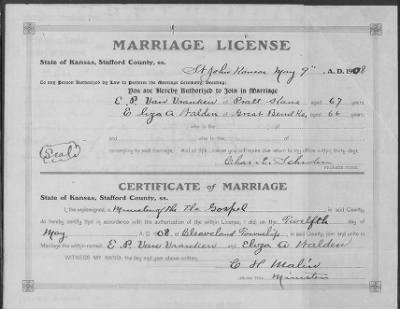 MARRIAGE LICENSE
State of Kansas, Stafford County, ss.
St John Kansas May 9" A.D. 1908
To any Person Authorized by Law to Perform the Marriage Ceremony, Greeting:
You are Hereby Authorized to Join in Marriage
E. P. Van Vranken of Pratt Kans aged 67 years
Eliza A Walden of Great Bend Ks, aged 66 years
who is the of
(Seal) and who is the of
consenting to said marriage. And of this License you will make due return to my office within thirty days.
Chas. E.
PROBATE JUDGE.
CERTIFICATE OF MARRIAGE
State of Kansas, Stafford County, ss.
I, the undersigned, a Minister of the Gospel in said County,
do hereby certify that in accordance with the authorization of the within License, I did, on the Twelfth day of
May A. D. 1908, at Cleaveland Township in said County, join and unite in
Marriage the within-named E. P. Van Vranken and Eliza A Walden
WITNESS MY HAND, the day and year above written. C H Malin
Minister